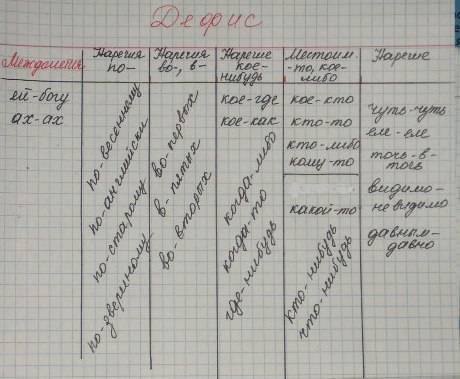 Дефис
Междометия
Наречия
по-
Наречия
во-, в-
Наречие
кое-
нибудь
Местоим.
-то, кое-
либо
Наречие
ей-богу
ах-ах
по-весеннему
по-английски
по-старому
по-звериному
во-первых
в-пятых
во-вторых
кое-где
кое-как
когда-либо
когда-то
где-нибудь
кое-кто
кто-то
кто-либо
кому-то
какой-то
кто-нибудь
что-нибудь
чуть-чуть
еле-еле
точь-в-
точь
видимо-
невидимо
давным-
давно